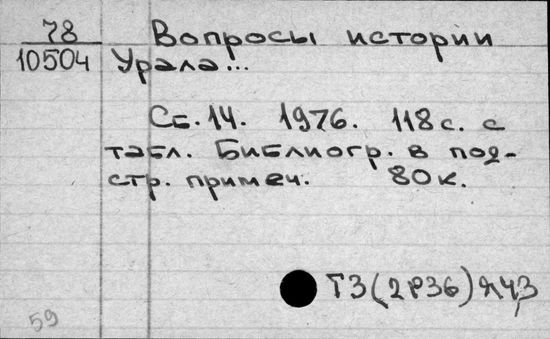 78
10504
Вопросы истории
Урала...
Сб. 14. 1976. 118 с. с
табл. Библиогр. в под-
стр. примеч. 80 к.
Т3(2Р36)я43
59